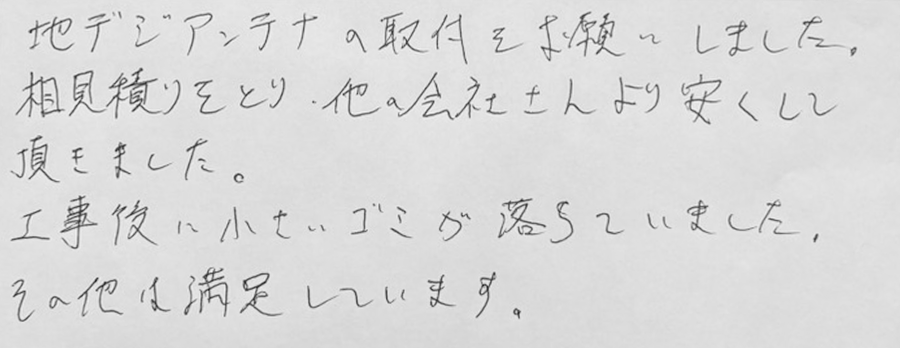 地デジアンテナの取付をお願いしました。
相見積りをとり、他の会社さんより安くして
頂きました。
工事後に小さいゴミが落ちていました。
その他は満足しています。